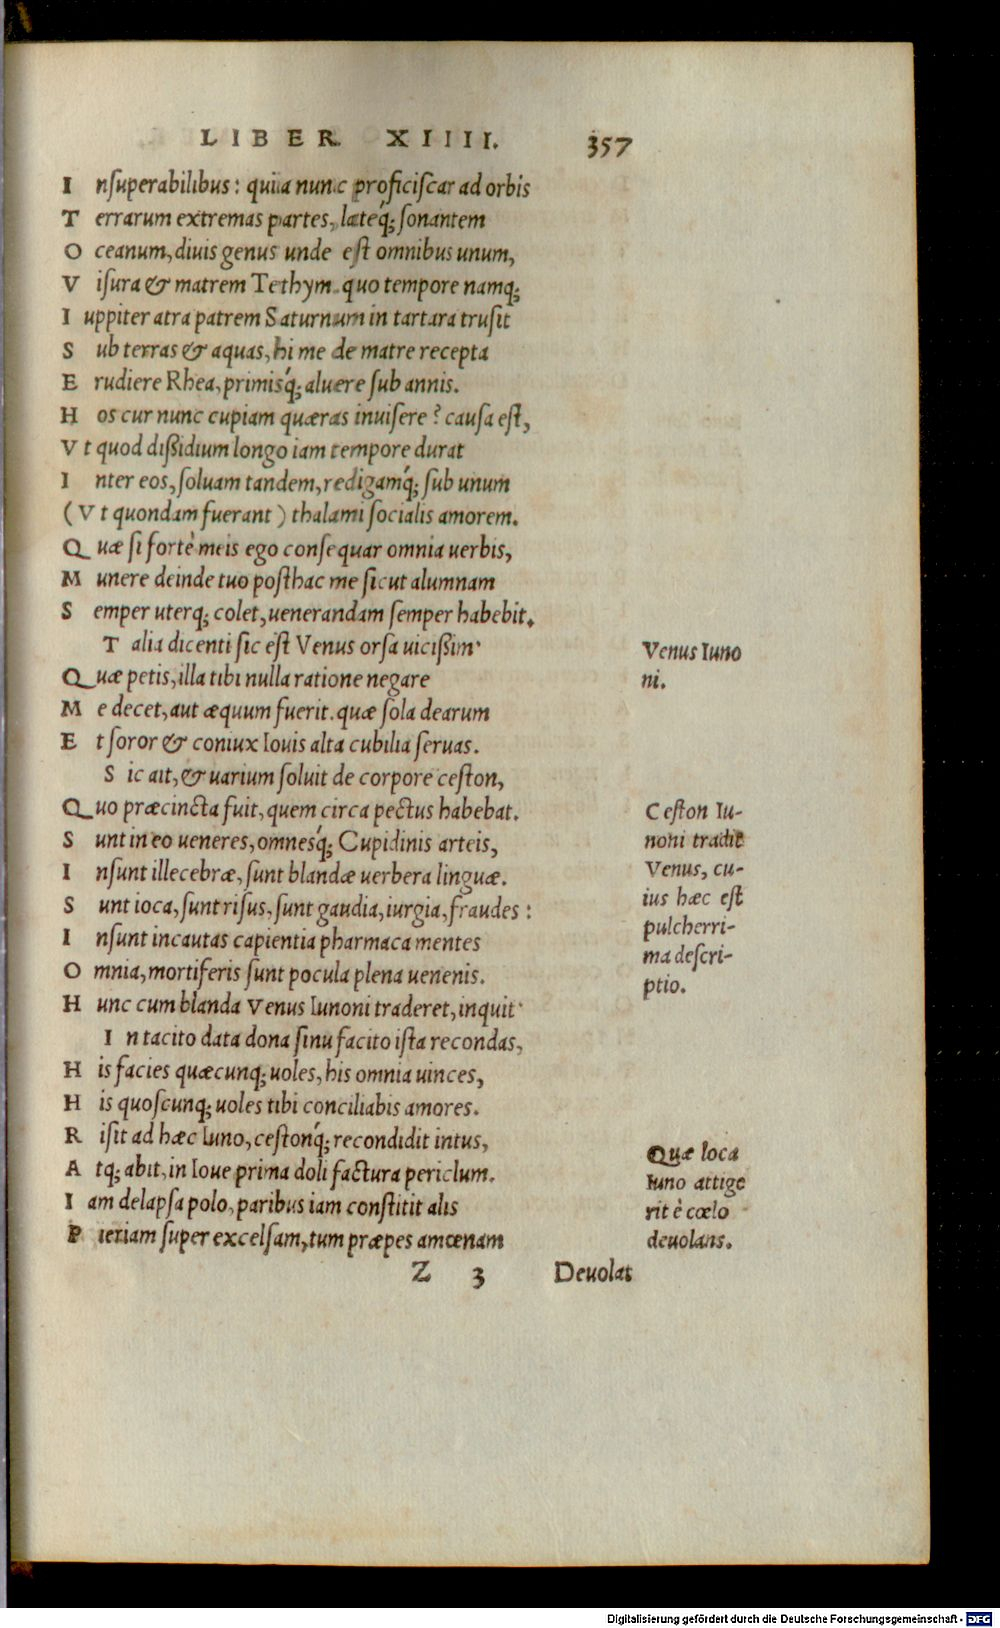 LIBER XIIII. 357
Insuperabilibus: quia nunc proficiscar ad orbis
Terrarum extremas partes, lateq́; sonantem
Oceanum, diuis genus unde est omnibus unum,
Visura & matrem Tethym. quo tempore namq;
Iuppiter atra patrem Saturnum in tartara trusit
Sub terras & aquas, hi me de matre recepta
Erudiere Rhea, primisq́; aluere sub annis.
Hos cur nunc cupiam quæras inuisere? causa est,
Vt quod dißidium longo iam tempore durat
Inter eos, soluam tandem, redigamq́; sub unum
(Vt quondam fuerant) thalami socialis amorem.
Quæ si fortè meis ego consequar omnia uerbis,
Munere deinde tuo posthac me sicut alumnam
Semper uterq; colet, uenerandam semper habebit.
Talia dicenti sic est Venus orsa uicißim·
Quæ petis, illa tibi nulla ratione negare
Me decet, aut æquum fuerit. quæ sola dearum
Et soror & coniux Iouis alta cubilia seruas.
Sic ait, & uarium soluit de corpore ceston,
Quo præcincta fuit, quem circa pectus habebat.
Sunt in eo ueneres, omnesq́; Cupidinis arteis,
Insunt illecebræ, sunt blandæ uerbera linguæ.
Sunt ioca, sunt risus, sunt gaudia, iurgia, fraudes:
Insunt incautas capientia pharmaca mentes
Omnia, mortiferis sunt pocula plena uenenis.
Hunc cum blanda Venus Iunoni traderet, inquit·
In tacito data dona sinu facito ista recondas,
His facies quæcunq; uoles, his omnia uinces,
His quoscunq; uoles tibi conciliabis amores.
Risit ad hæc Iuno, cestonq́; recondidit intus,
Atq; abit, in Ioue prima doli factura periclum.
Iam delapsa polo, paribus iam constitit alis
Pieriam super excelsam, tum præpes amœnam
Z 3 Deuolat
Venus Iuno
ni.
Ceston Iu-
noni tradit
Venus, cu-
ius hæc est
pulcherri-
ma descri-
ptio.
Quæ loca
Iuno attige
rit è cœlo
deuolans.
Digitalisierung gefördert durch die Deutsche Forschungsgemeinschaft - DFG